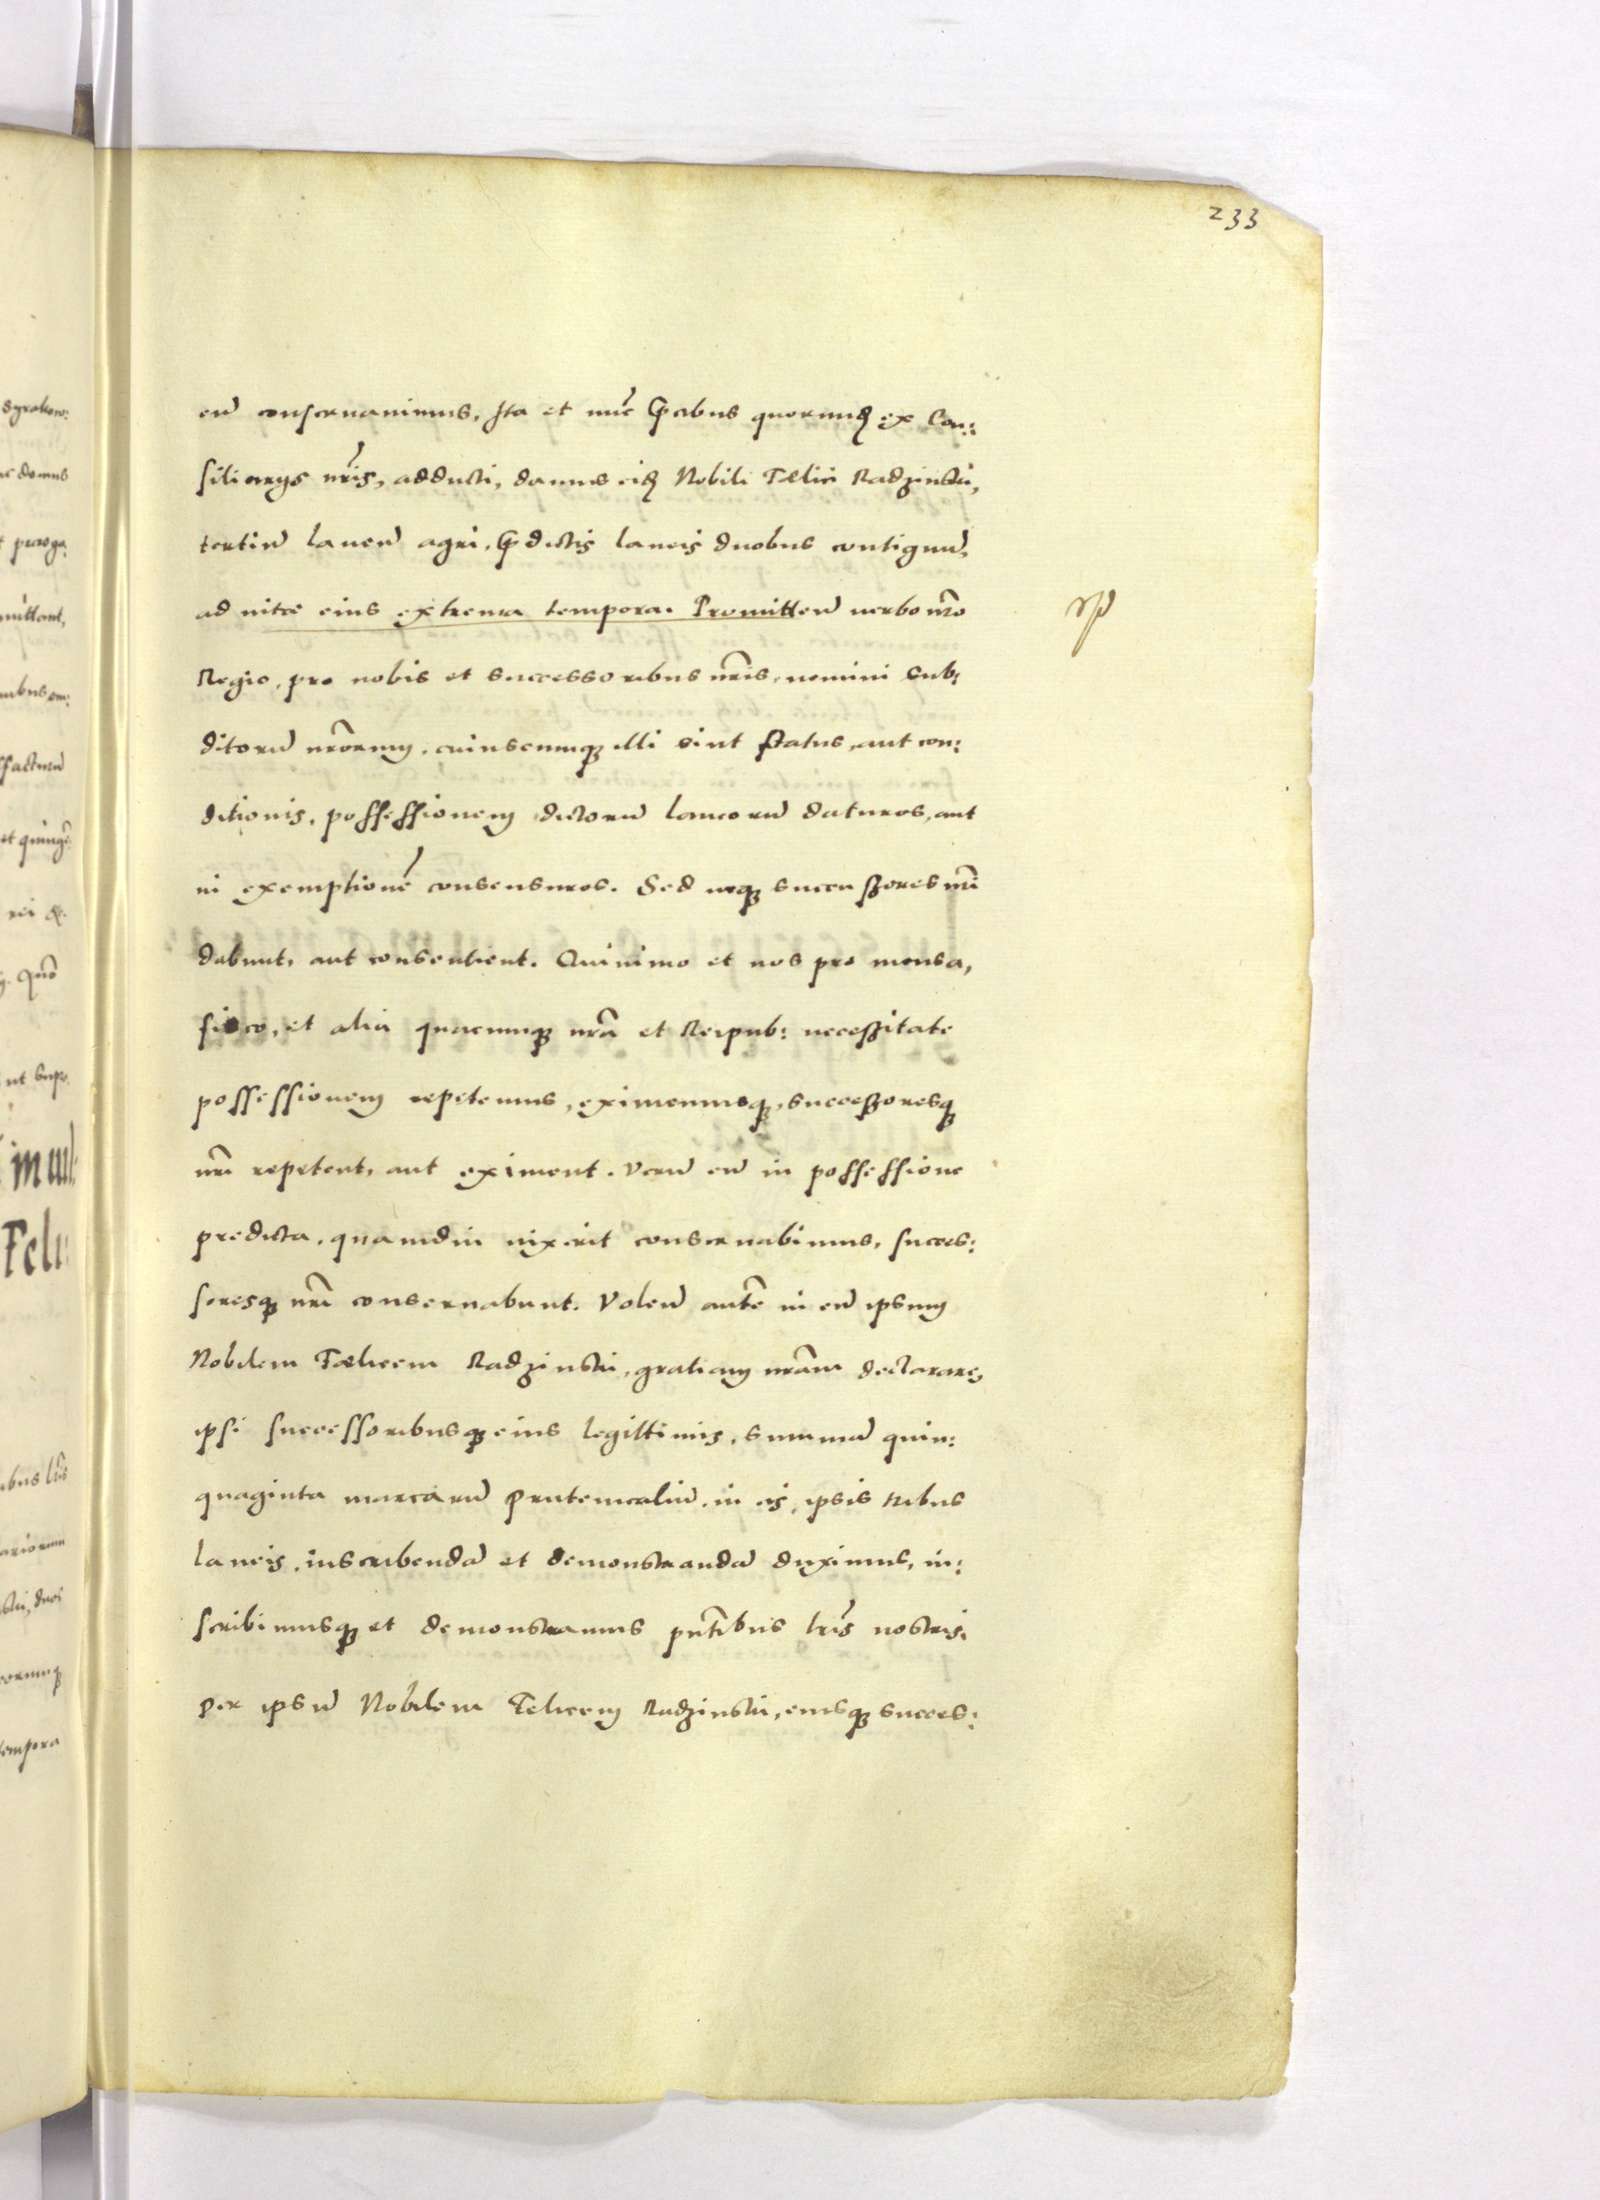 233
eū conseruauimus, Ita et nūc p̄cibus quorundꝫ ex Con:
siliarys nr̃is, adducti, damus eidꝫ Nobili Fœlici Radzinski,
tertiū laneū agri, p̄dictis laneis duobus contiguū,
ad uitæ eius extrema tempora. Promitten̄ uerbo nr̃o
Regio, pro nobis et successoribus nr̃is, nemini sub:
ditorū nr̃orum, cuiuscunqꝫ illi sint status, aut con:
ditionis, possessionem dictorū laneorū daturos, aut
in exemptionē consensuros. Sed neqꝫ successores nr̃i
dabunt, aut consentient. Quinimo et nos pro mensa,
fisco, et alia quacunqꝫ nr̃a et Reipub: necessitate
possessionem repetemus, eximemusqꝫ, successoresqꝫ
nr̃i repetent, aut eximent. Verū eū in possessione
predicta, quamdiu uixerit conseruabimus, succes:
soresqꝫ nr̃i conseruabunt. Volen̄ autē in eū ipsum
Nobilem Fœlicem Radzinski, gratiam nr̃am declarare,
ipsi successoribusqꝫ eius legittimis, summā quin:
quaginta marcarū Prutenicaliū, in ijs, ipsis tribus
laneis, inscribendā et demonstrandā duximus, in:
scribimusqꝫ et demonstramus pñtibus lr̃is nostris,
per ipsū Nobilem Felicem Radzinski, eiusqꝫ succes: